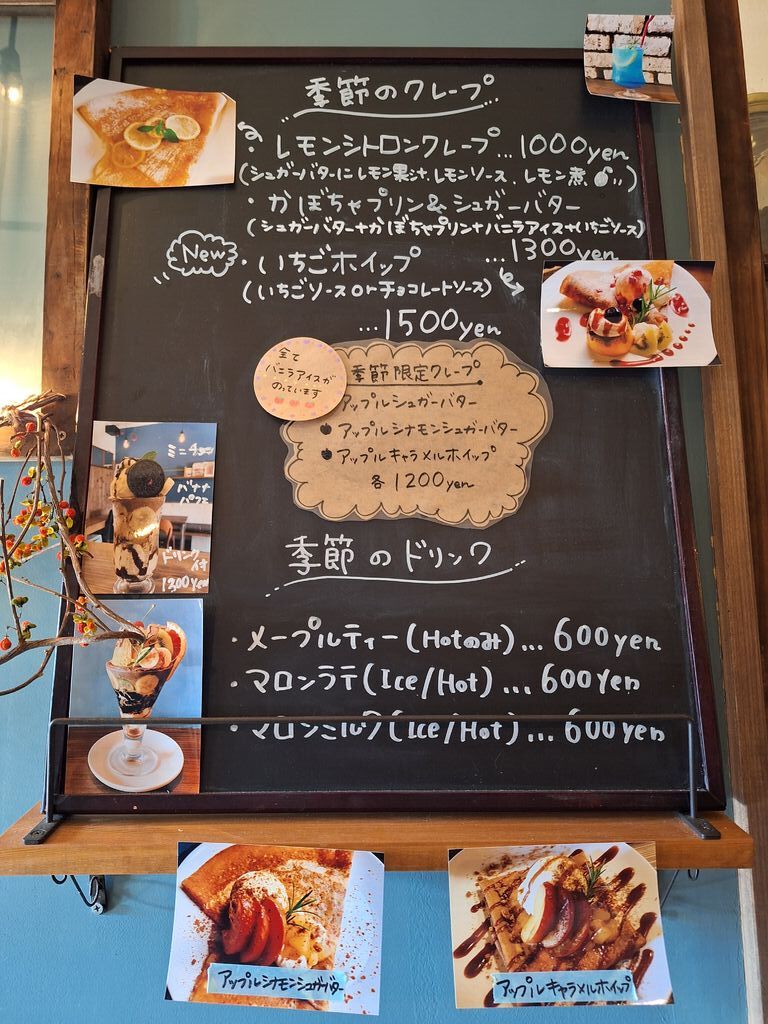 季節のクレープ
・レモンシトロンクレープ...1000yen
(シュガーバターにレモン果汁、レモンソース、レモン煮
・かぼちゃプリン&シュガーバター
(シュガーバター+かぼちゃプリン+バニラアイス+いちごソース)
...1300yen
New
・いちごホイップ
(いちごソースorチョコレートソース)
...1500yen
全て
バニラアイスが
のっています
季節限定クレープ
アップルシュガーバター
アップルシナモンシュガーバター
アップルキャラメルホイップ
各1200yen
ミニ
バナナ
パフェ
ドリンク
付
1200yen
季節のドリンク
・メープルティー(Hotのみ)...600yen
・マロンラテ(Ice/Hot)...600yen
・マロンミルク(Ice/Hot)...600yen
アップルシナモンシュガーバター
アップルキャラメルホイップ